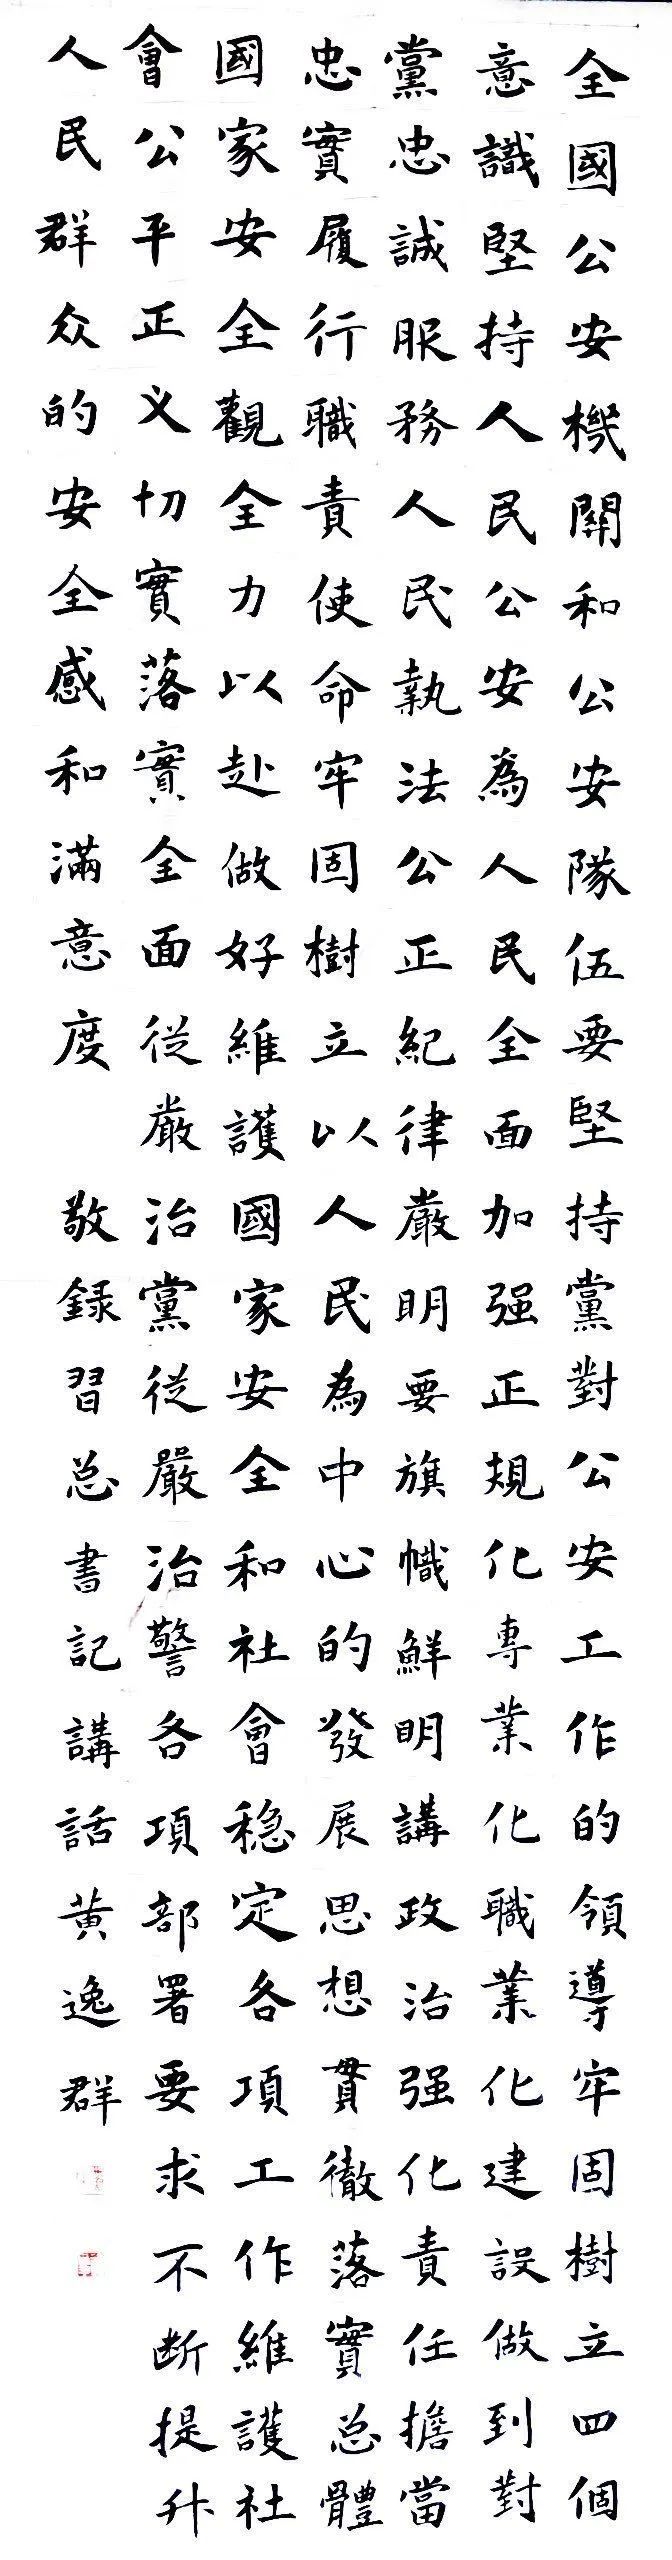 全國公安機關和公安隊伍要堅持黨對公安工作的領導牢固樹立四個
意識堅持人民公安為人民全面加强正規化專業化職業化建設做到對
黨忠誠服務人民執法公正紀律嚴明要旗幟鮮明講政治强化責任擔當
忠實履行職責使命牢固樹立以人民為中心的發展思想貫徹落實总體
國家安全觀全力以赴做好維護國家安全和社會稳定各項工作維護社
會公平正义切實落實全面從嚴治黨從嚴治警各項部署要求不断提升
人民群众的安全感和滿意度 敬録習总書記講話黄逸群